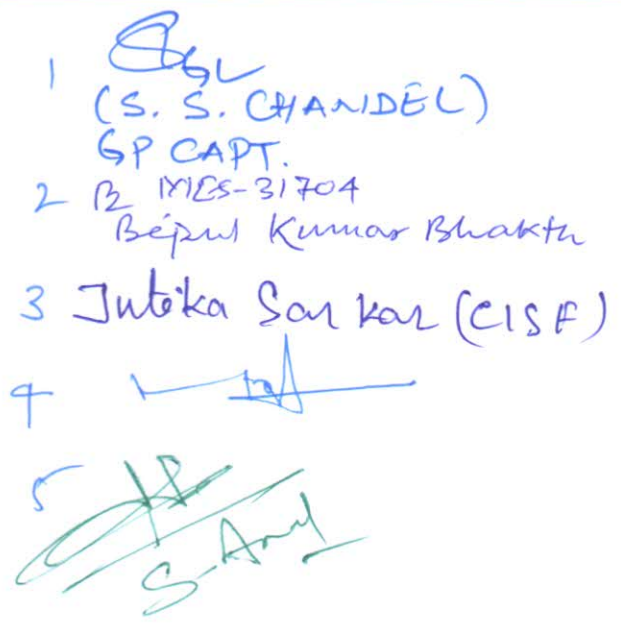 1
(S. S. CHANDEL)
GP CAPT.
2 MES-31704
Bepul Kumar Bhakta
3 Jutika Sarkar (CISF)
4
5
S. Anil